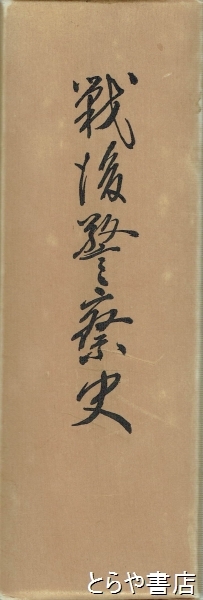 戦後警察史
とらや書店